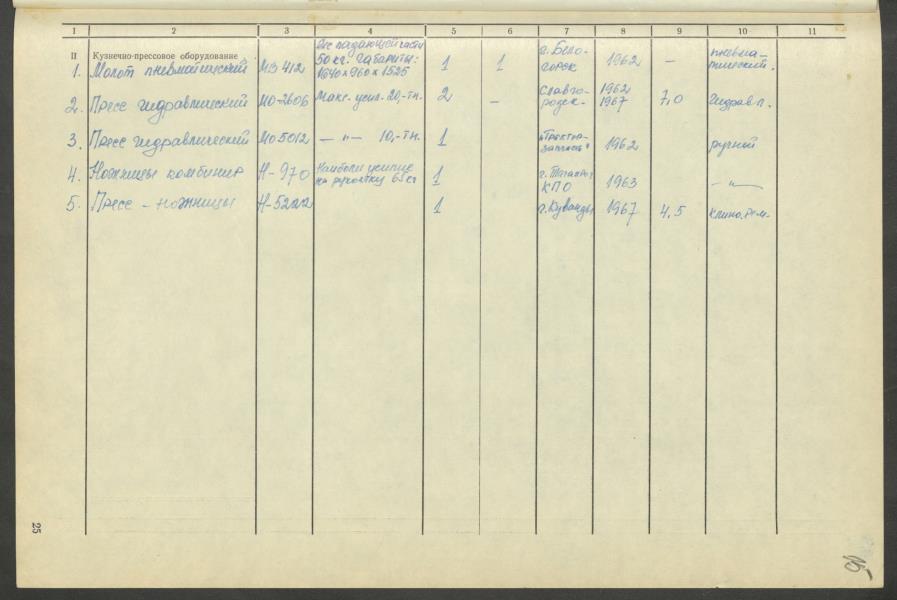 1 2 3 4 5 6 7 8 9 10 11
II Кузнечно-прессовое оборудование
1. Молот пневматический МВ 412 Вес падающей части 50 кг. Габариты: 1640 х 960 х 1525 1 1 г. Бело-горск 1962 — пневма-тический.
2. Пресс гидравлический МО-2606 Макс. усил. 20,-тн. 2 — Славго-родск. 1962 1967 7,0 Гидравл.
3. Пресс гидравлический МО 5012 — „ — 10,-тн. 1 1962 ручной
4. Ножницы комбинир Н-970 на рукоятку 1 КПО 1963 — „ —
5. Пресс-ножницы Н-5222 1 г. Куванды 1967 4,5
25